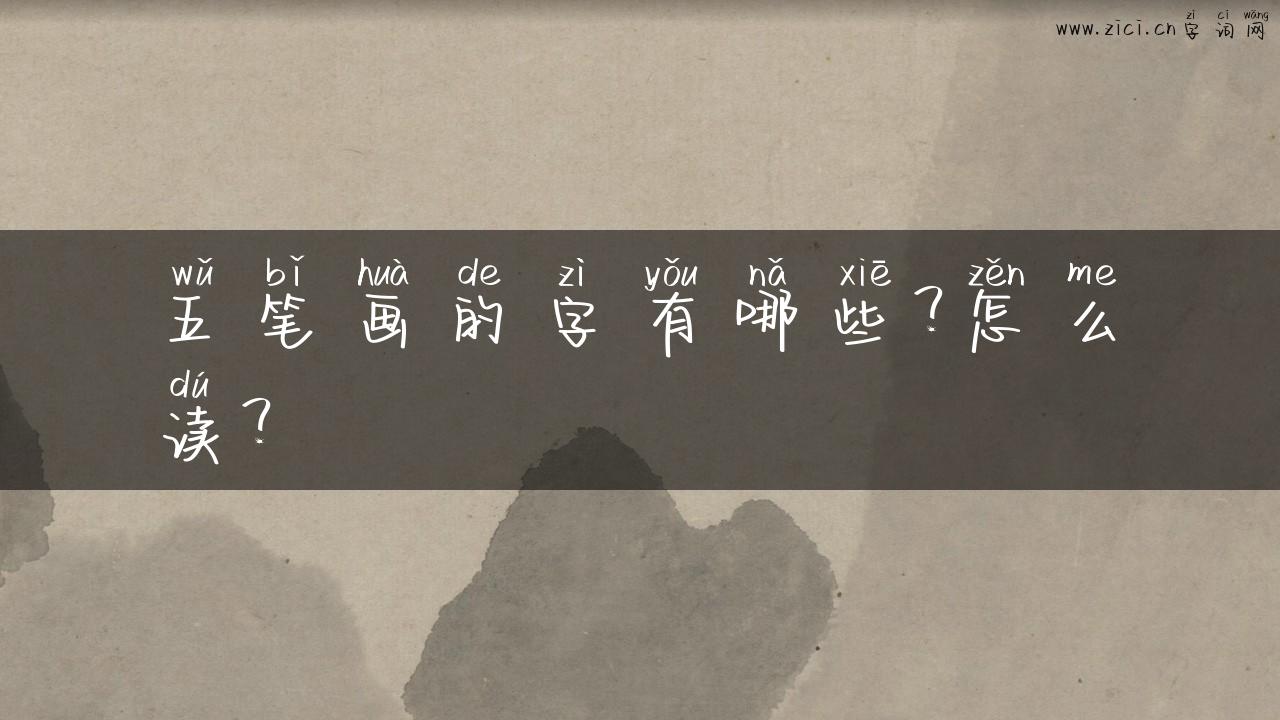 zì cí wǎng
www.zici.cn 字词网
wǔ bǐ huà de zì yǒu nǎ xiē zěn me
五笔画的字有哪些？怎么
dú
读？